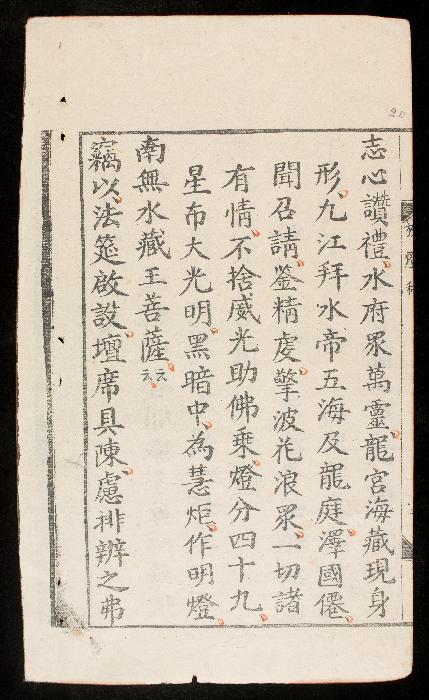 志心讚禮水府眾萬靈龍宮海藏現身
形九江拜水帝五海及龍庭澤國僊
聞召請鉴精虔擎波花浪眾一切諸
有情不捨威光助佛乗燈分四十九
星布大光明黑暗中為慧炬作明燈
南無水藏王菩薩云云
竊以法筵啟設壇席具陳慮排辦之弗
20